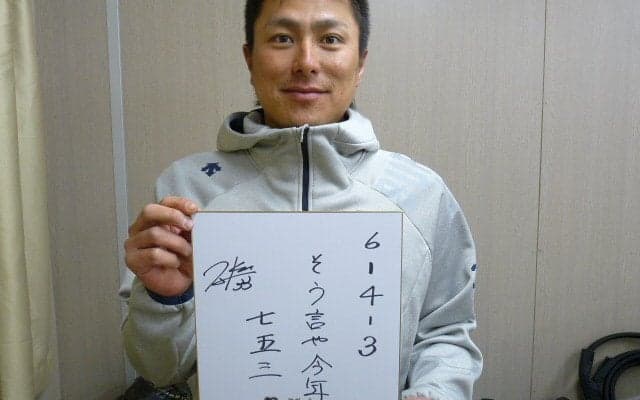 6-4-3
そう言や今年
七五三